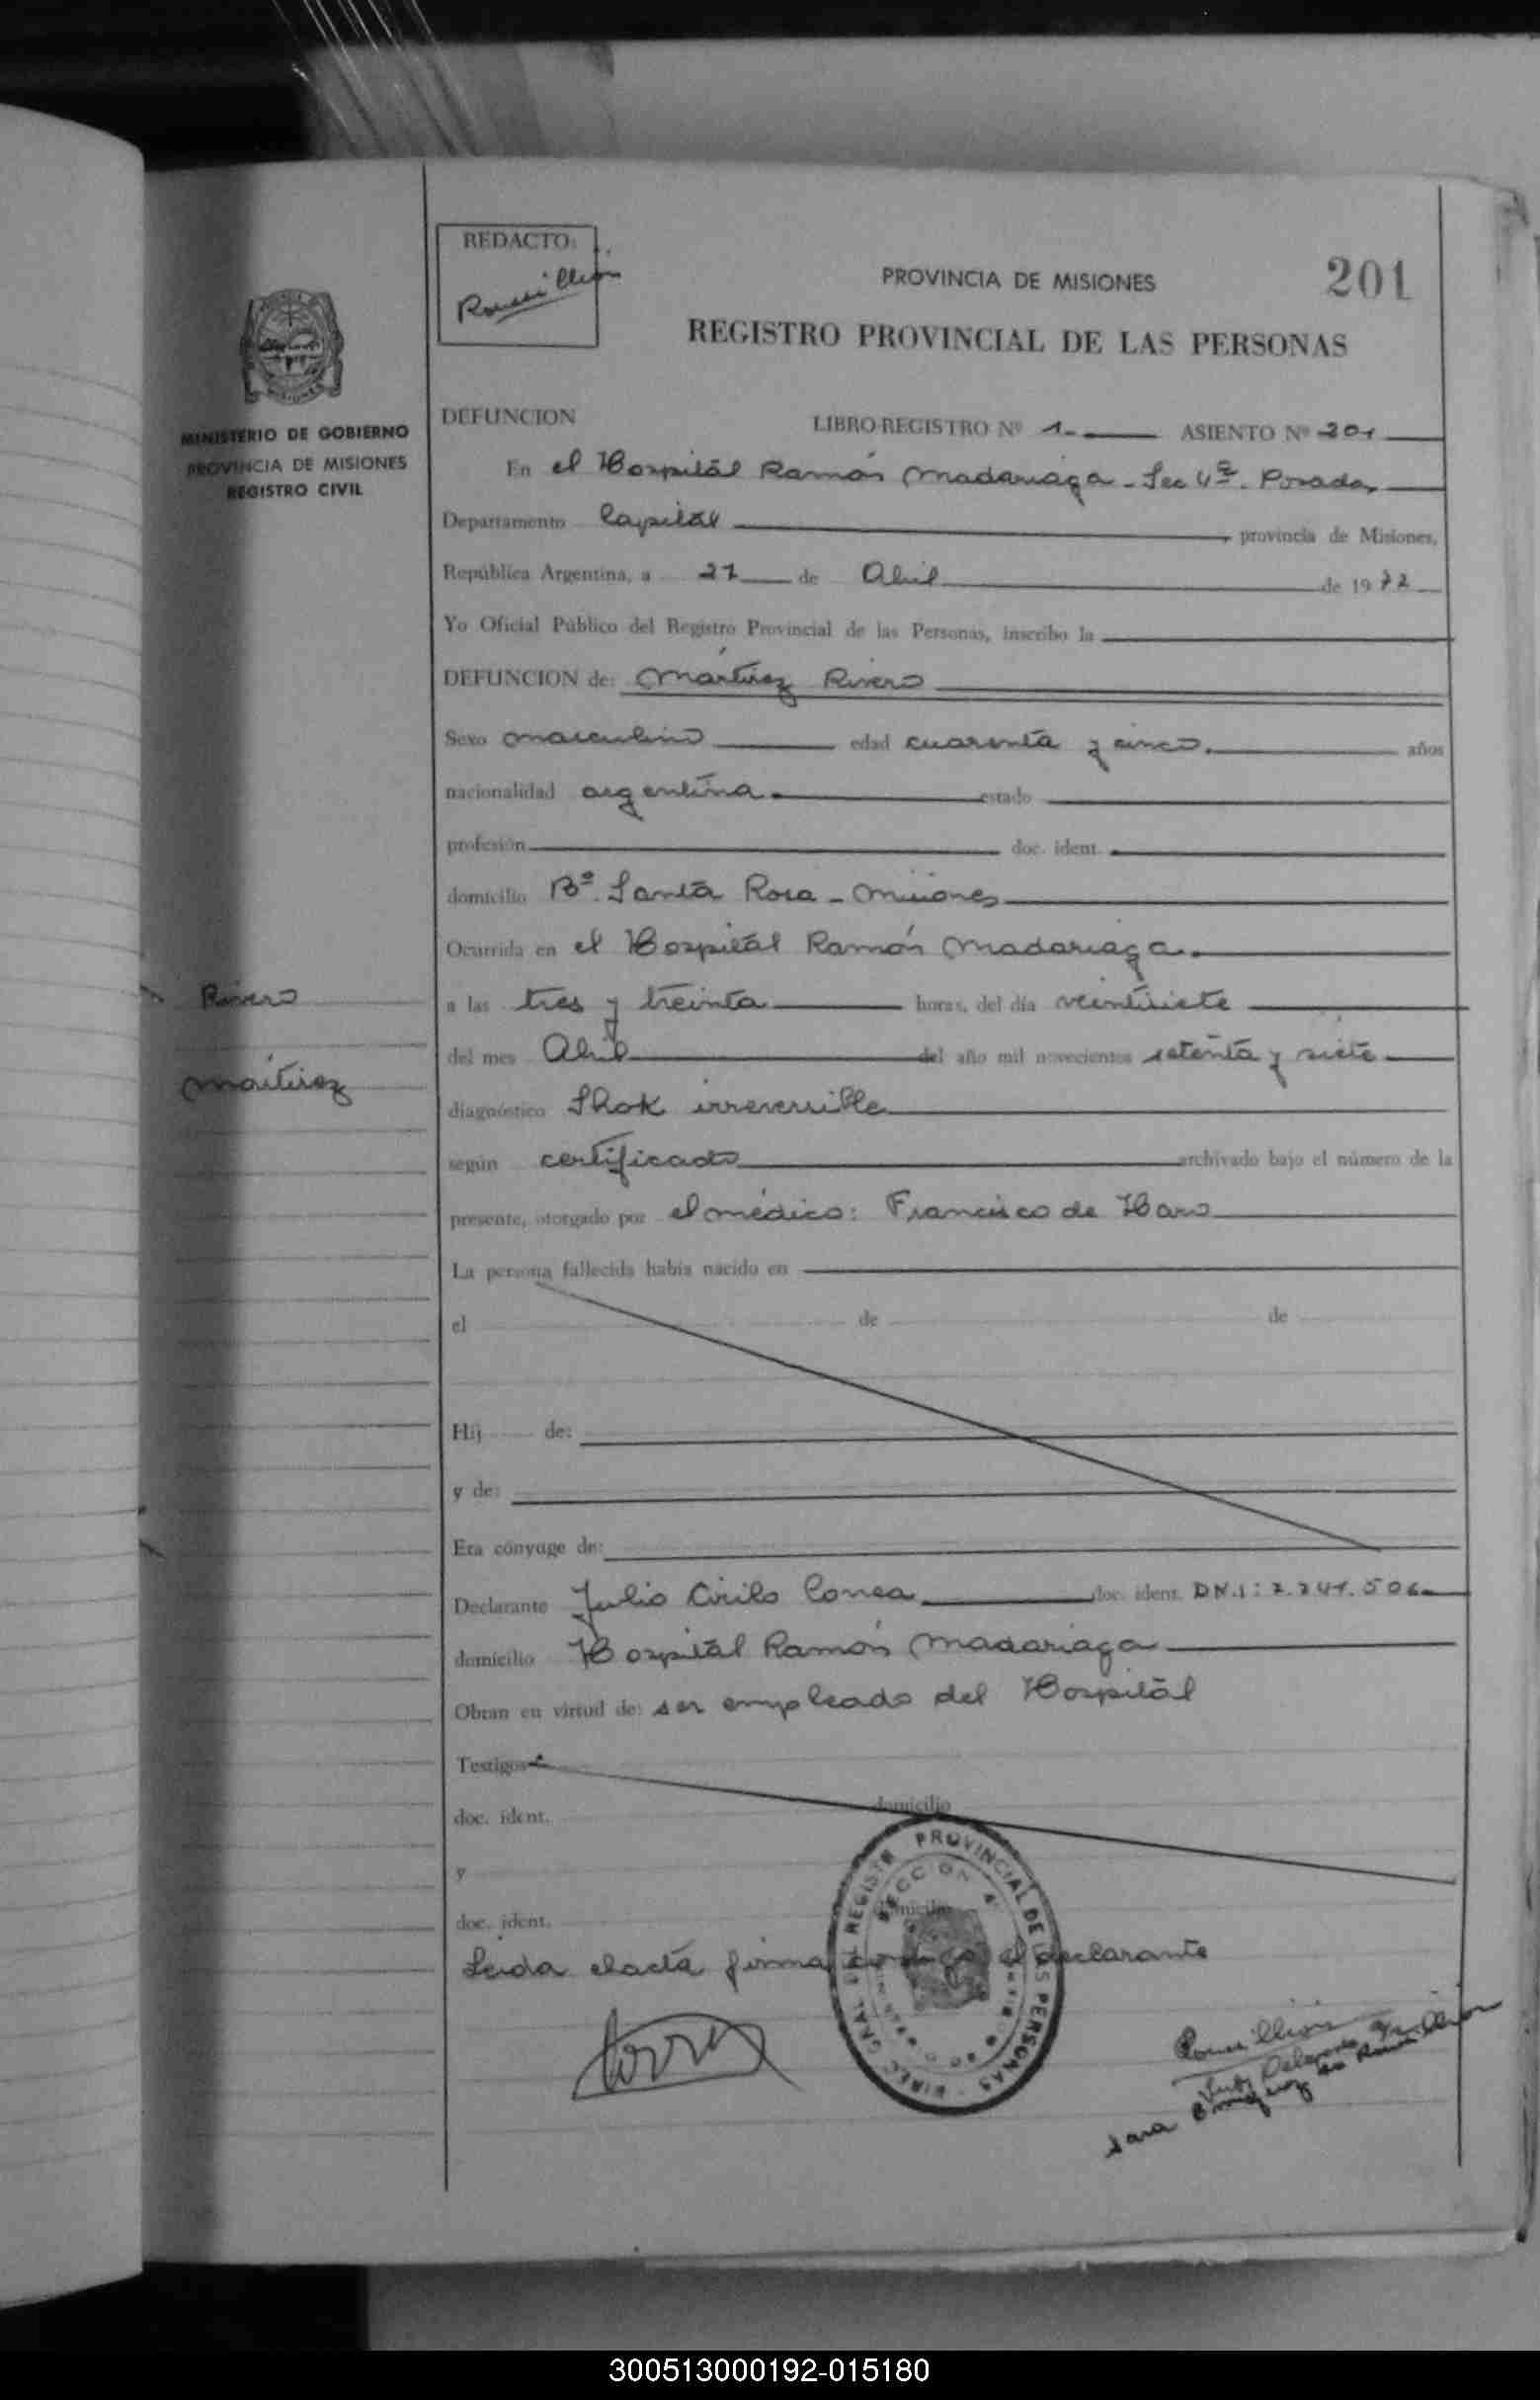 REDACTO:
PROVINCIA DE MISIONES
201
REGISTRO PROVINCIAL DE LAS PERSONAS
MINISTERIO DE GOBIERNO
PROVINCIA DE MISIONES
REGISTRO CIVIL
DEFUNCION LIBRO-REGISTRO Nº 1- ASIENTO Nº 201
En el Hospital Ramón Madariaga - Sec 4ª - Posadas
Departamento Capital, provincia de Misiones,
República Argentina, a 27 de Abril de 1977
Yo Oficial Público del Registro Provincial de las Personas, inscribo la
DEFUNCION de: Mártirez Rivero
Sexo masculino edad cuarenta y cinco. años
nacionalidad argentina. estado
profesión doc. ident.
domicilio Bº. Santa Rosa - Misiones
Ocurrida en el Hospital Ramón Madariaga.
Rivero
a las tres y treinta horas, del día veintisiete
del mes Abril del año mil novecientos setenta y siete
Mártirez
diagnóstico Shok irreversible
según certificado archivado bajo el número de la
presente, otorgado por el médico: Francisco de Haro
La persona fallecida había nacido en
el de de
Hij de:
y de:
Era cónyuge de:
Declarante Julio Cirilo Correa doc. ident. DN.I: 7.741.506
domicilio Hospital Ramón Madariaga
Obran en virtud de: ser empleado del Hospital
Testigos
doc. ident. domicilio
y
doc. ident. domicilio
Leida el acta firma conmigo el declarante
DIREC. GRAL. DEL REGISTR. PROVINCIAL DE LAS PERSONAS
SECCION 4ª
Sara
300513000192-015180